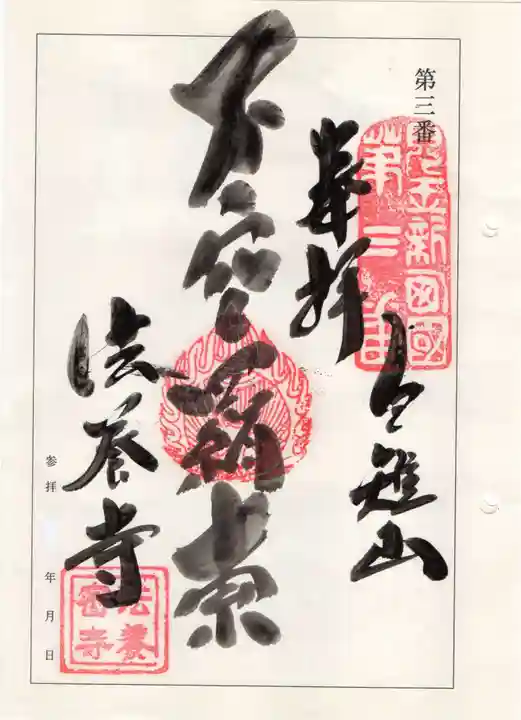 第三番
新四國
第三番
奉拝
白雉山
不空羂索
法養寺
法養
密寺
参拝 年 月 日